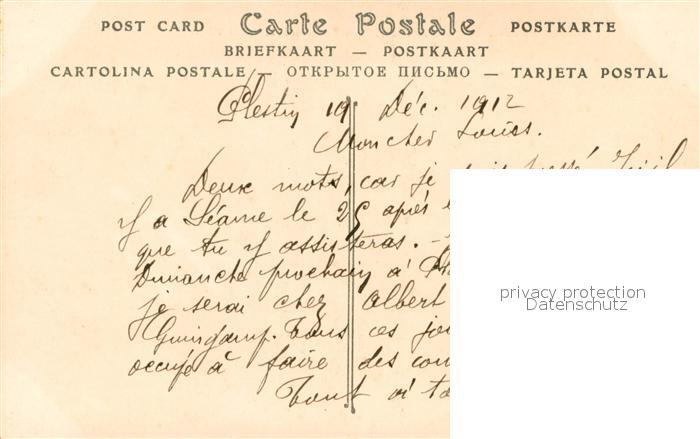 POST CARD Carte Postale POSTKARTE
BRIEFKAART — POSTKAART
CARTOLINA POSTALE — ОТКРЫТОЕ ПИСЬМО — TARJETA POSTAL
Plestin 19 Déc. 1912
Mon cher Louis.
Deux mots, car je suis pressé
y a Séance le 25 après
que tu y assisteras. —
Dimanche prochain à
je serai chez Albert
Guingamp. Tous ces
occupé à faire des
Tout à
privacy protection
Datenschutz